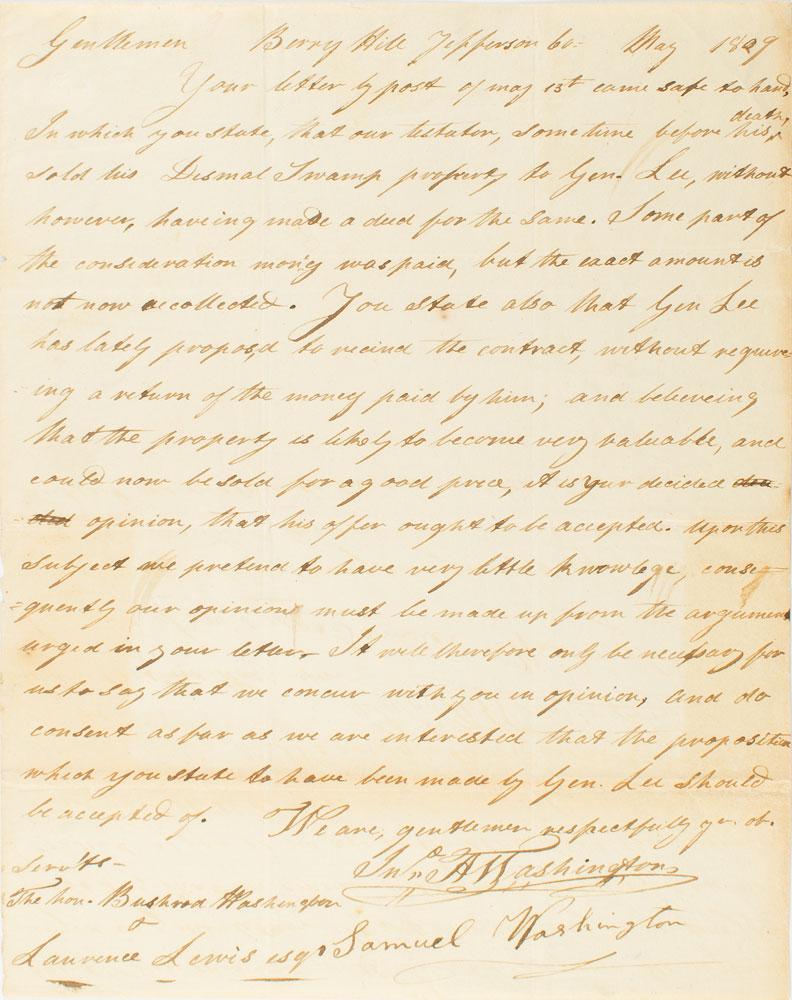 Gentlemen Berry Hill Jefferson Co- May 1809
Your letter by post of may 13th came safe to hand,
death,
In which you state, that our testator, sometime before his,
sold his Dismal Swamp property to Gen. Lee, without
however, haveing made a deed for the same. Some part of
the consideration mon'y was paid, but the exact amount is
not now recollected. You state also that Gen Lee
has lately propos,d to recind the contract, without requier=
-ing a return of the money paid by him; and beleveing
that the property is likely to become very valuable, and
could now be sold for a good price, it is your decided deci-
-ded opinion, that his offer ought to be accepted. Upon this
subject we pretend to have very little knowlege, conse-
=quently our opinion must be made up from the argument
urged in your letter. It will therefore only be necessary for
us to say that we concur with you in opinion, and do
consent as far as we are interested that the proposition
which you state to have been made by Gen. Lee should
be accepted of. We are, gentlemen respectfully yr. ob.
Servts-
Jno. A Washington
The hon. Bushrod Washington
&
Laurence Lewis esqr Samuel Washington